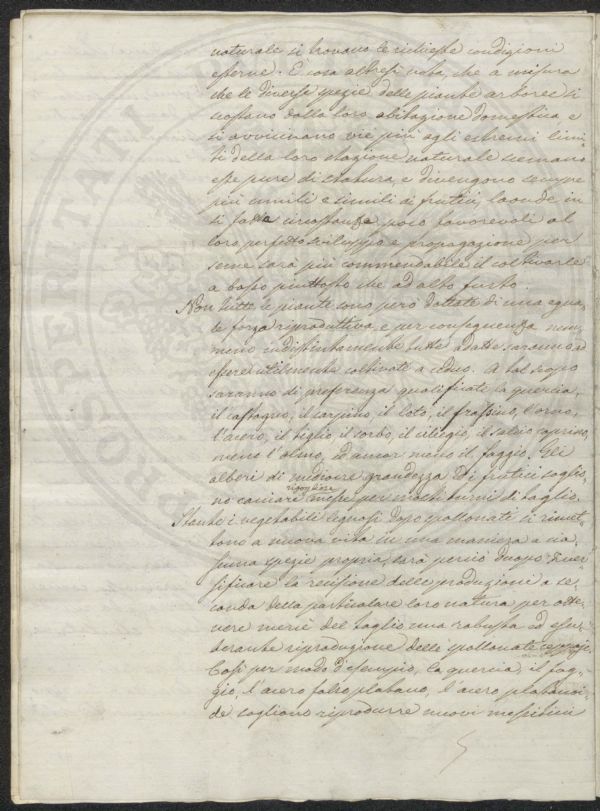 naturale si trovano le richieste condizioni
esterne. È cosa altresì nota, che a misura
che le diverse spezie delle piante arboree si
scostano dalla loro abitazione domestica, e
si avvicinano vie più agli estremi limi-
ti della loro stazione naturale scemano
esse pure di statura, e divengono sempre
più umili e simili ai frutici, laonde in
sì fatte circostanze poco favorevoli al
loro perfetto sviluppo e propagazione per
seme sarà più commendabile il coltivarle
a basso piuttosto che ad alto fusto.
Non tutte le piante sono però dottate di una egua-
le forza riproduttiva, e per conseguenza nem-
meno indistintamente tutte adatte saranno ad
essere utilmente coltivate a ceduo. A tal scopo
saranno di preferenza qualificate la quercia,
il castagno, il carpino, il loto, il frassino, l'orno,
l'acero, il tiglio, il sorbo, il ciliegio, il salcio caprino,
meno l'olmo, ed ancor meno il faggio. Gli
alberi di mediocre grandezza ed i frutici soglio-
no cacciare rigogliose messe per molti turni di taglio.
Stante i vegetabili legnosi dopo spollonati si rimet-
tono a nuova vita in una maniera a cia-
scuna spezie propria, sarà perciò duopo diver-
sificare la recisione delle produzioni a se-
conda della particolare loro natura per otte-
nere mercè del taglio una robusta ed esube-
rante riproduzione delle spollonate ceppaje.
Così per modo d'esempio, la quercia, il fag-
gio, l'acero falso platano, l'acero platanoi-
de sogliono riprodurre nuovi messiticci
PROSPERITATI